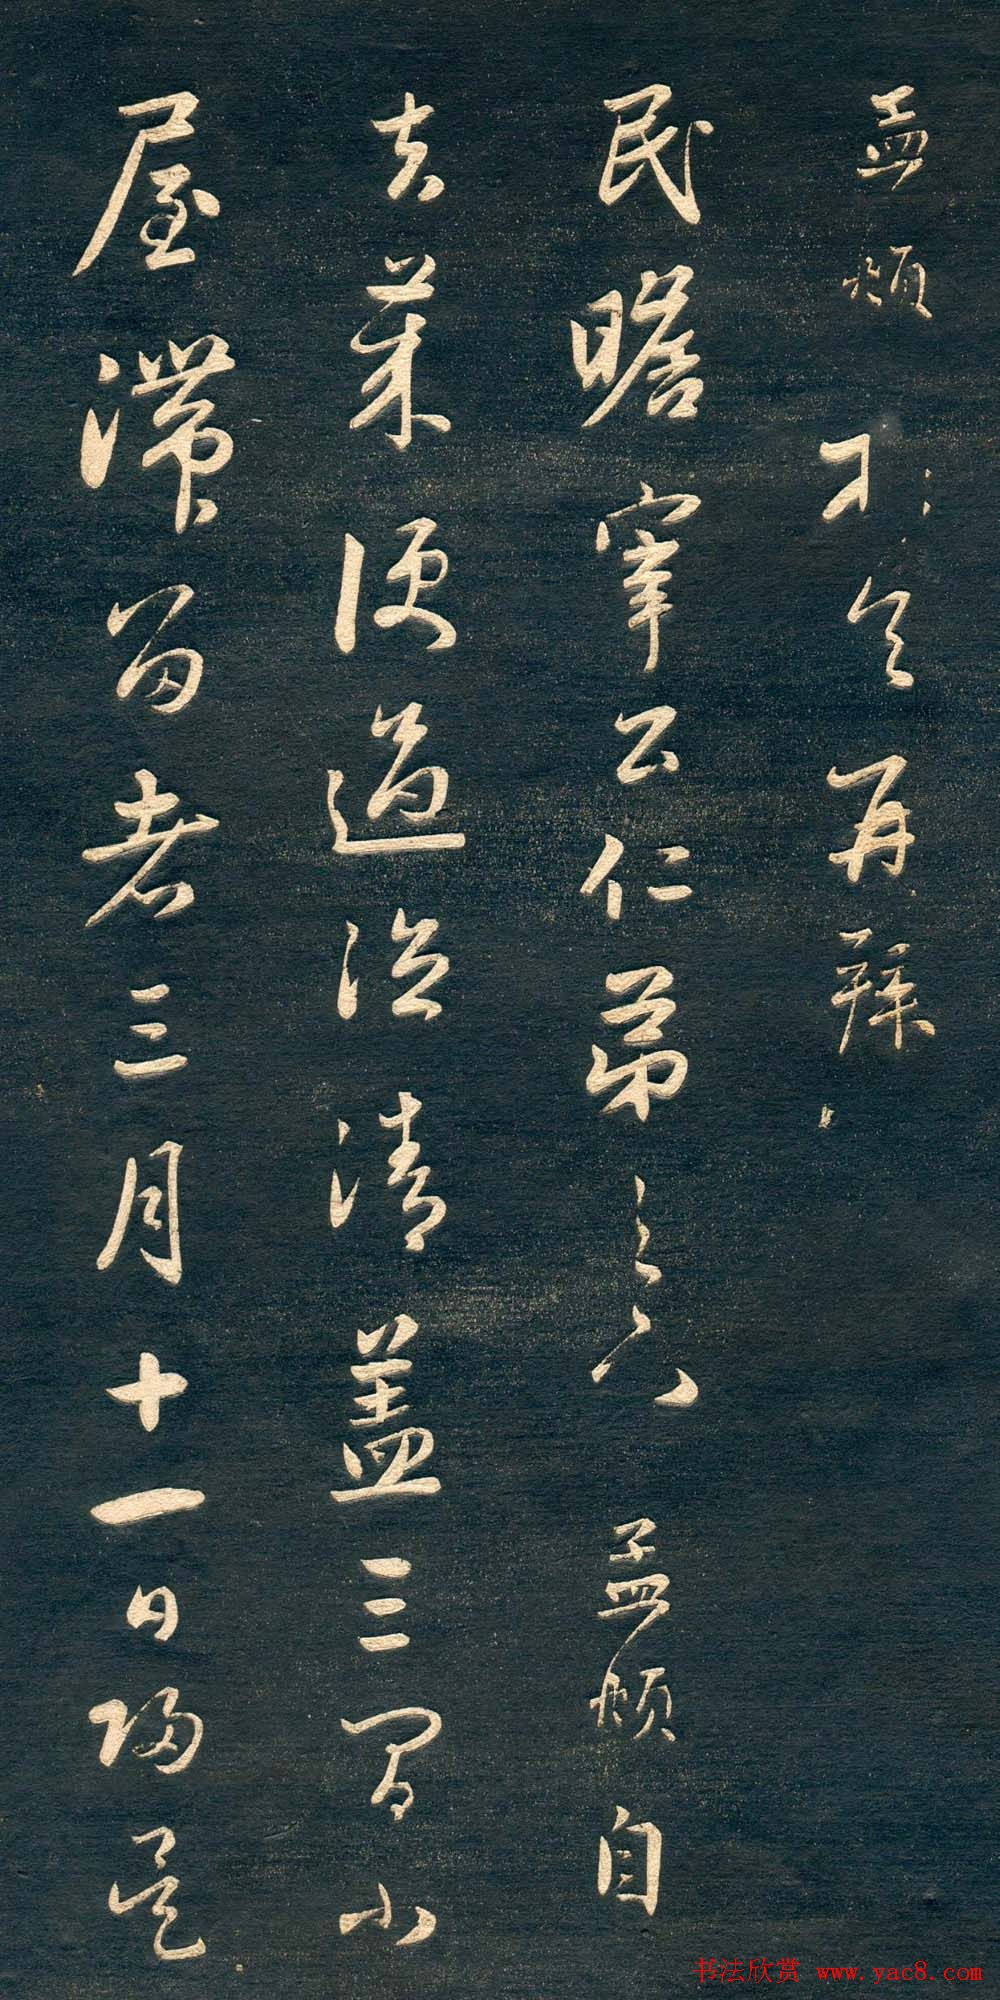 孟頫頓首再拜
民瞻宰公仁弟足下孟頫自
去歲便過德清蓋三間小
屋滯留者三月十一日歸是
书法欣赏 www.yac8.com